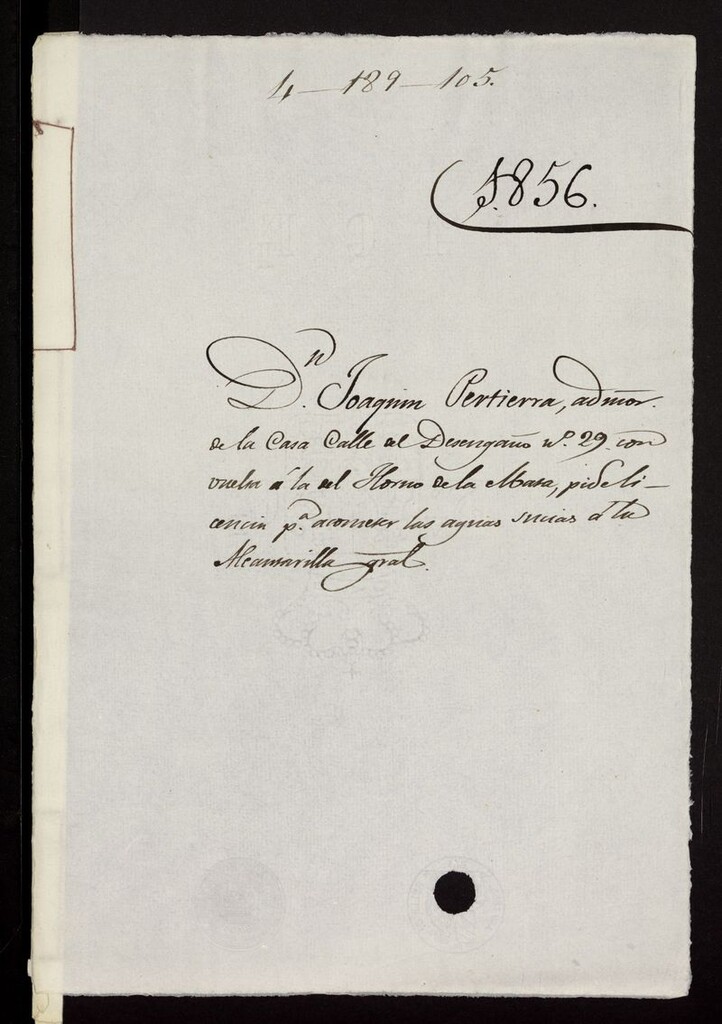 4—189—105.
1856.
Dn. Joaquin Pertierra, admor.
de la Casa Calle del Desengaño nº. 29 con
vuelta á la del Horno de la Mata, pide li-
cencia pª. acometer las aguas sucias á la
Alcantarilla gral.